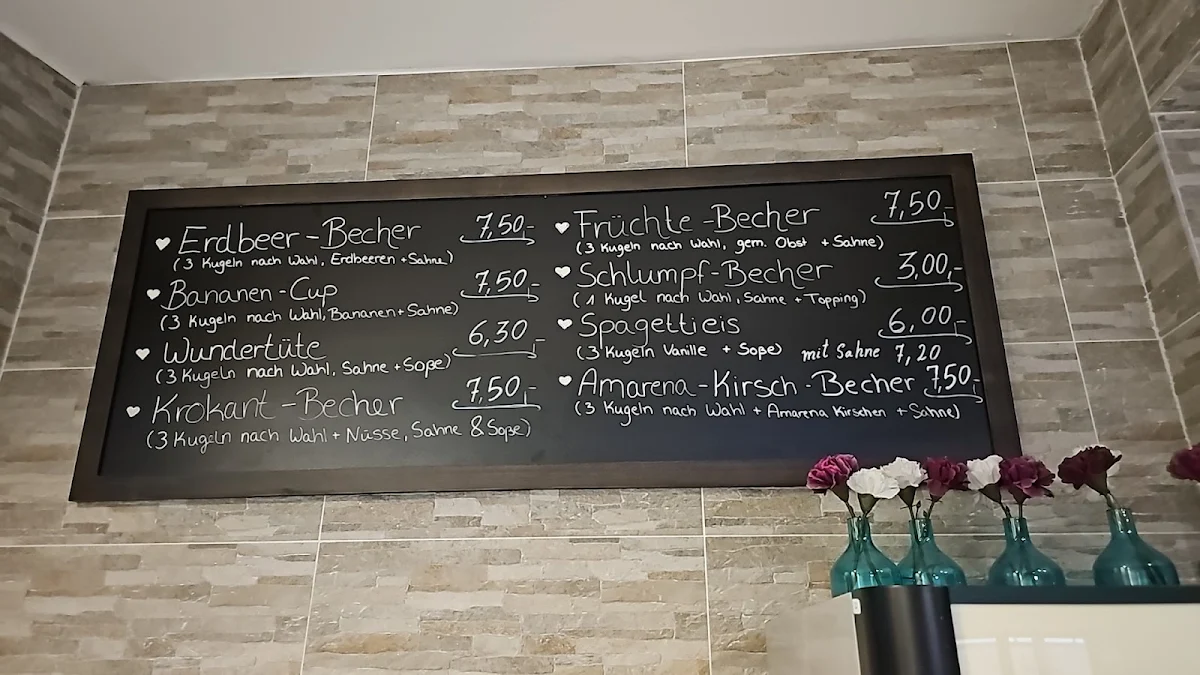 ♥ Erdbeer-Becher 7,50,-
(3 Kugeln nach Wahl, Erdbeeren + Sahne)
♥ Bananen-Cup 7,50,-
(3 Kugeln nach Wahl, Bananen + Sahne)
♥ Wundertüte 6,30,-
(3 Kugeln nach Wahl, Sahne + Soße)
♥ Krokant-Becher 7,50,-
(3 Kugeln nach Wahl + Nüsse, Sahne & Soße)
♥ Früchte-Becher 7,50,-
(3 Kugeln nach Wahl, gem. Obst + Sahne)
♥ Schlumpf-Becher 3,00,-
(1 Kugel nach Wahl, Sahne + Topping)
♥ Spagettieis 6,00,-
(3 Kugeln Vanille + Soße) mit Sahne 7,20
♥ Amarena-Kirsch-Becher 7,50,-
(3 Kugeln nach Wahl + Amarena Kirschen + Sahne)